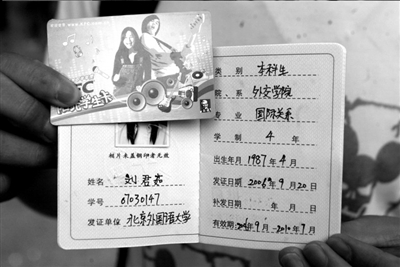 KFC
学生卡
相片未盖钢印者无效
姓名 刘君茹
学号 67030147
发证单位 北京外国语大学
类别 本科生
院系 外交学院
专业 国际关系
学制 4 年
出生年月 1987年4月
发证日期 2006年9月20日
补发日期 年 月 日
有效期 2006年9月-2010年7月